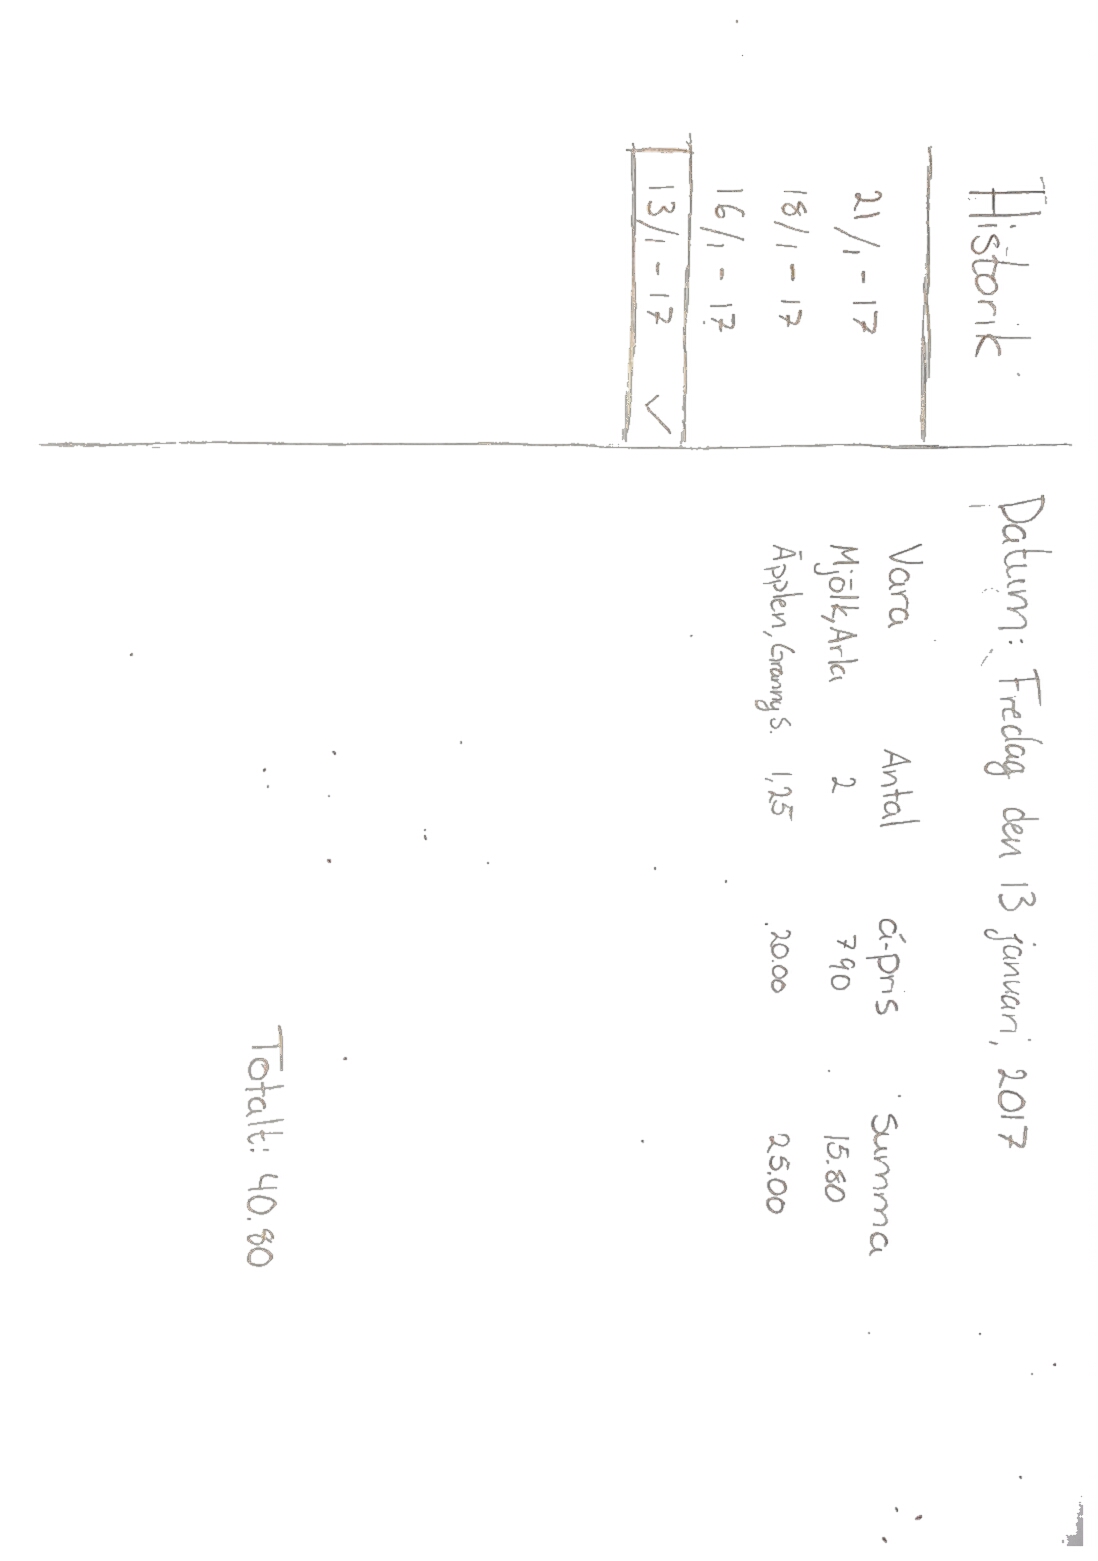 Historik
21/1 - 17
18/1 - 17
16/1 - 17
13/1 - 17 ✓
Datum: Fredag den 13 januari, 2017
Vara Antal á-pris Summa
Mjölk, Arla 2 7 90 15.80
Äpplen, Granny S. 1,25 20.00 25.00
Totalt: 40.80